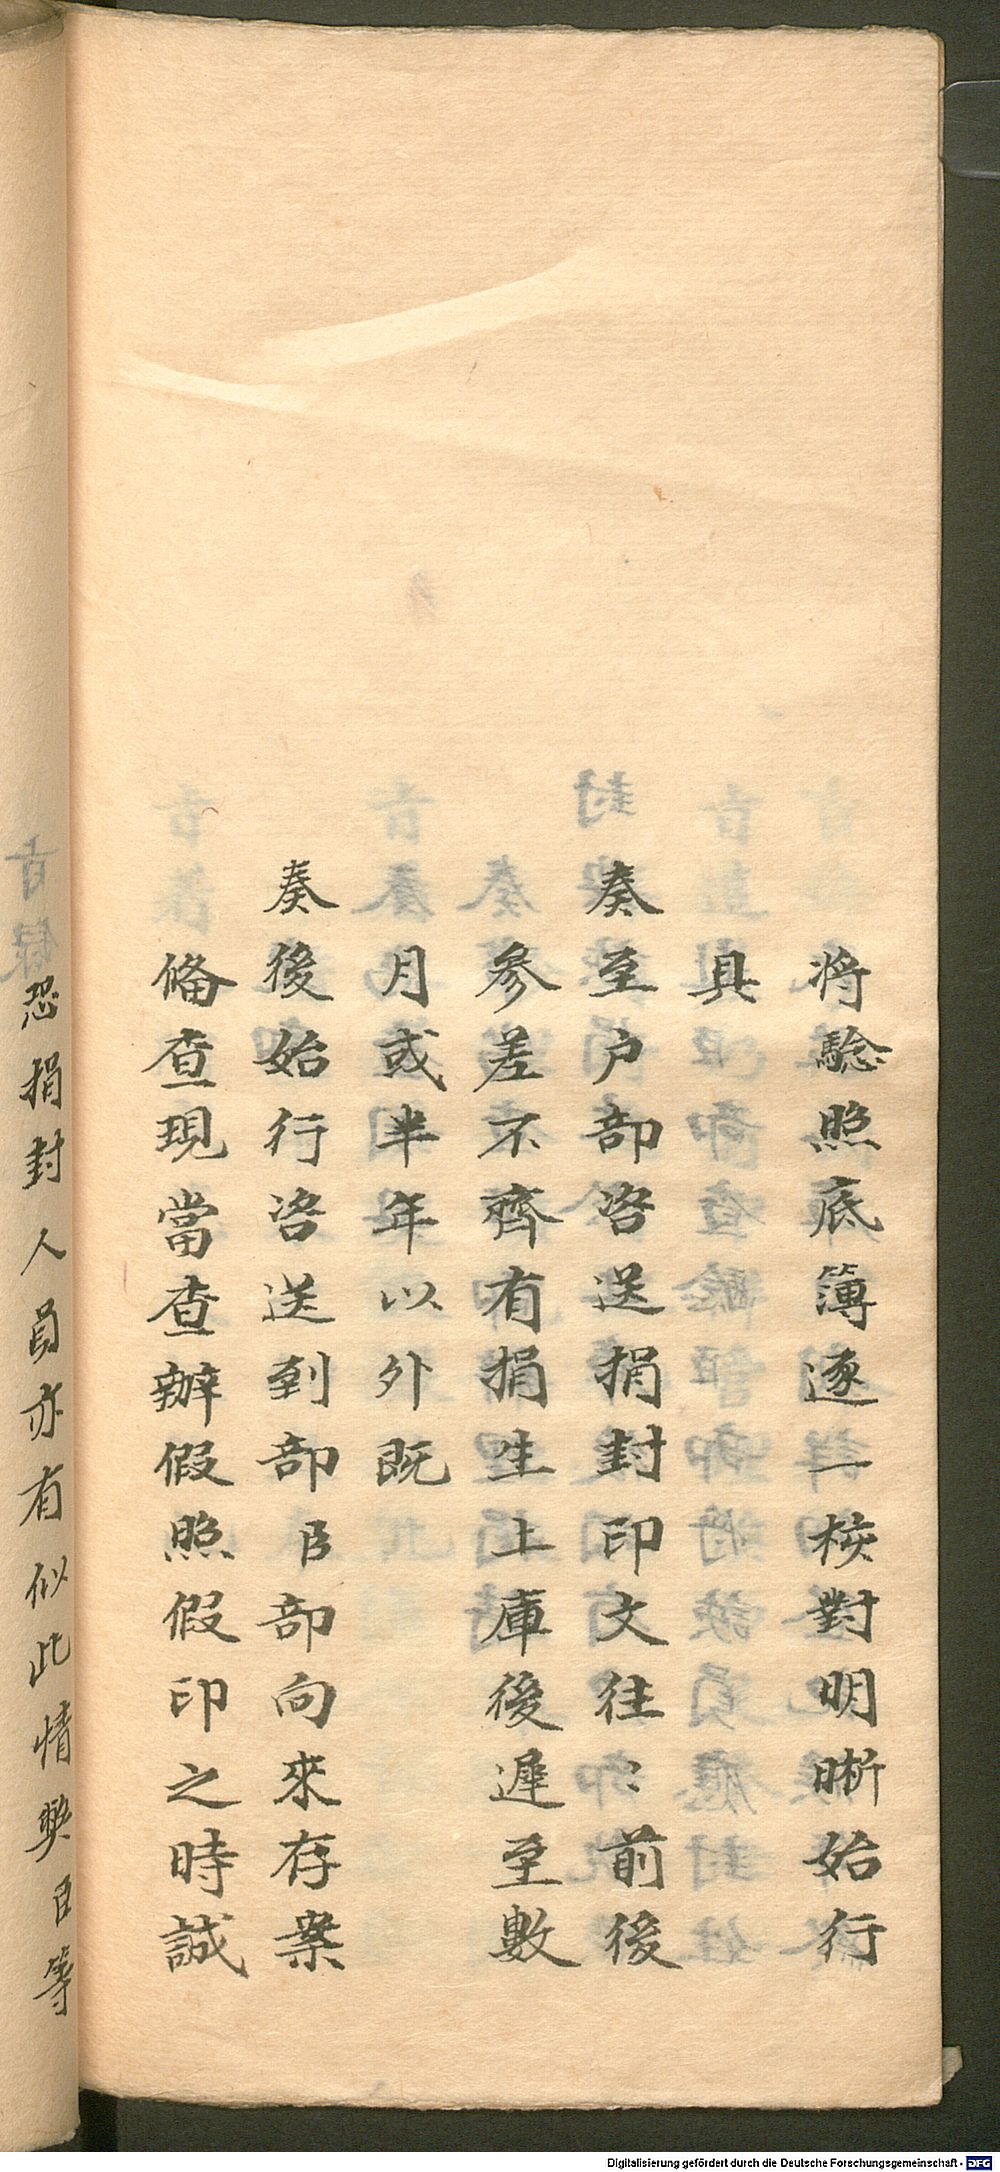 将騐照底簿逐一校對明晰始行
具
奏至户部咨送捐封印文往〻前後
參差不齊有捐生上庫後遲至數
月或半年以外既
奏後始行咨送到部臣部向來存案
俻查現當查辦假照假印之時誠
恐捐封人員亦有似此情獘臣等
Digitalisierung gefördert durch die Deutsche Forschungsgemeinschaft - DFG